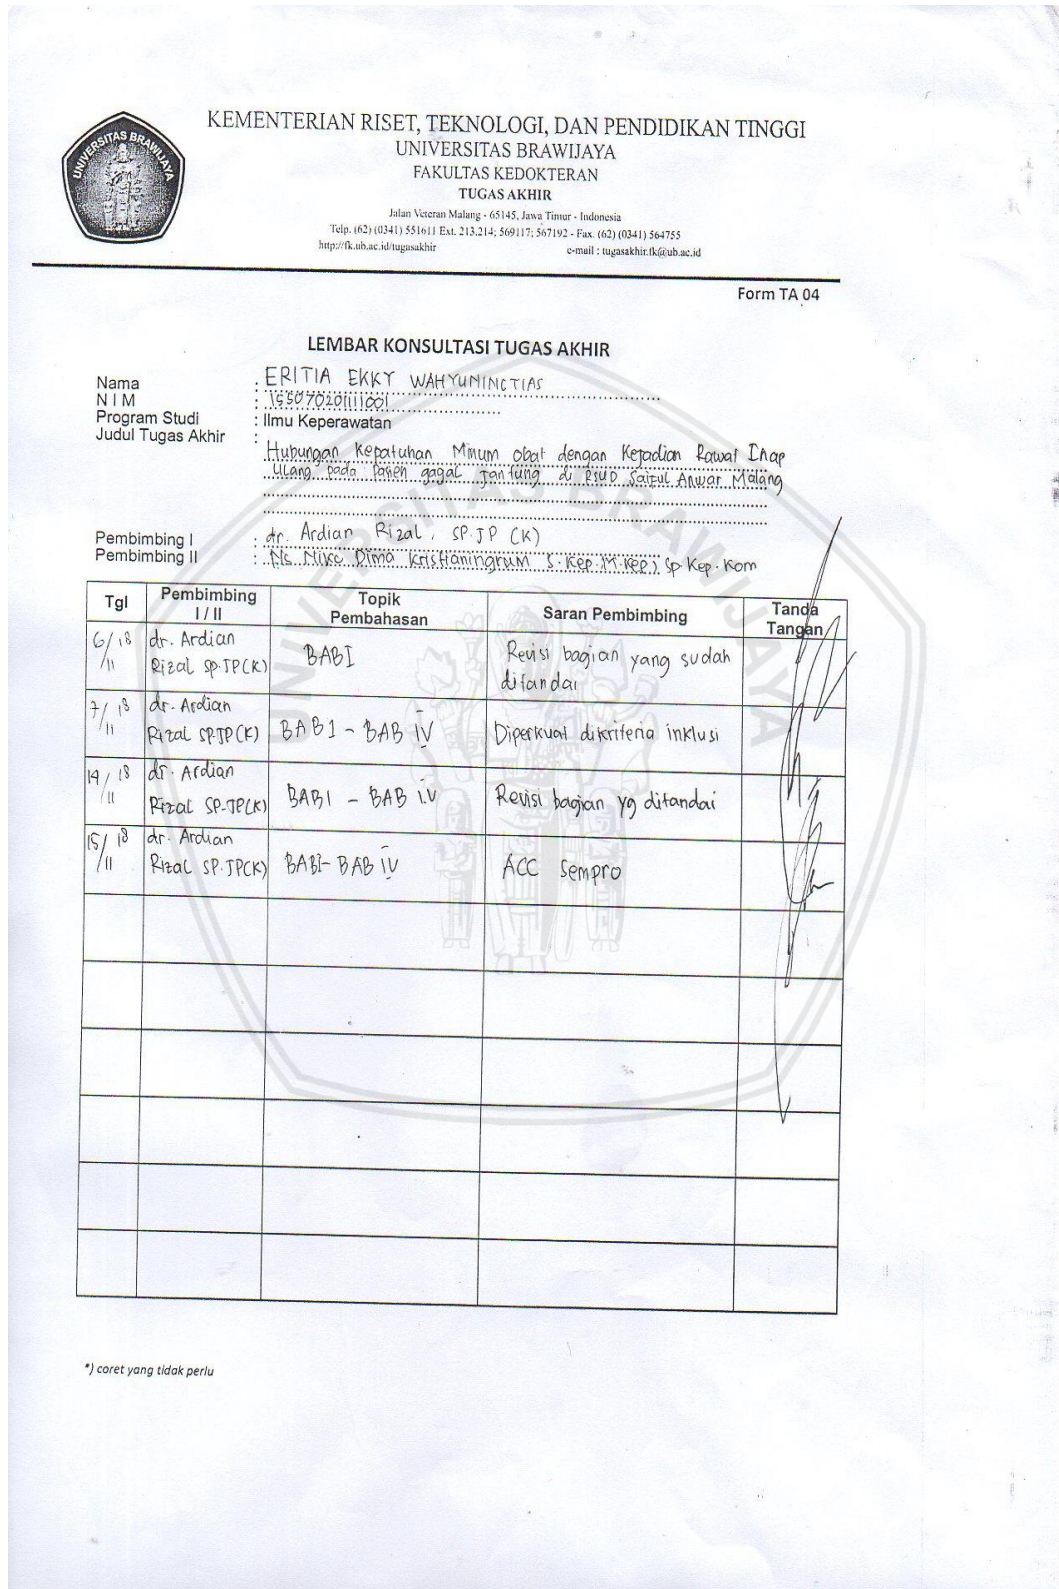 UNIVERSITAS BRAWIJAYA
KEMENTERIAN RISET, TEKNOLOGI, DAN PENDIDIKAN TINGGI
UNIVERSITAS BRAWIJAYA
FAKULTAS KEDOKTERAN
TUGAS AKHIR
Jalan Veteran Malang - 65145, Jawa Timur - Indonesia
Telp. (62) (0341) 551611 Ext. 213.214; 569117; 567192 - Fax. (62) (0341) 564755
http://fk.ub.ac.id/tugasakhir e-mail : tugasakhir.fk@ub.ac.id
Form TA 04
LEMBAR KONSULTASI TUGAS AKHIR
Nama : ERITIA EKKY WAHYUNINCTIAS
N I M : 155070201111001
Program Studi : Ilmu Keperawatan
Judul Tugas Akhir :
Hubungan Kepatuhan Minum obat dengan Kejadian Rawat Inap
Ulang pada Pasien gagal jantung di RSUD Saiful Anwar Malang
Pembimbing I : dr. Ardian Rizal, SP.JP (K)
Pembimbing II : Ns. Niko Dima Kristianingrum S.Kep.M.Kep, Sp Kep.Kom
Tgl Pembimbing I / II Topik Pembahasan Saran Pembimbing Tanda Tangan
6/11 18 dr. Ardian Rizal Sp.JP(K) BAB I Revisi bagian yang sudah ditandai
7/11 18 dr. Ardian Rizal SP.JP(K) BAB I - BAB IV Diperkuat dikriteria inklusi
14/11 18 dr. Ardian Rizal SP.JP(K) BAB I - BAB IV Revisi bagian yg ditandai
15/11 18 dr. Ardian Rizal SP.JP(K) BAB I - BAB IV ACC Sempro
*) coret yang tidak perlu
UNIVERSITAS BRAWIJAYA